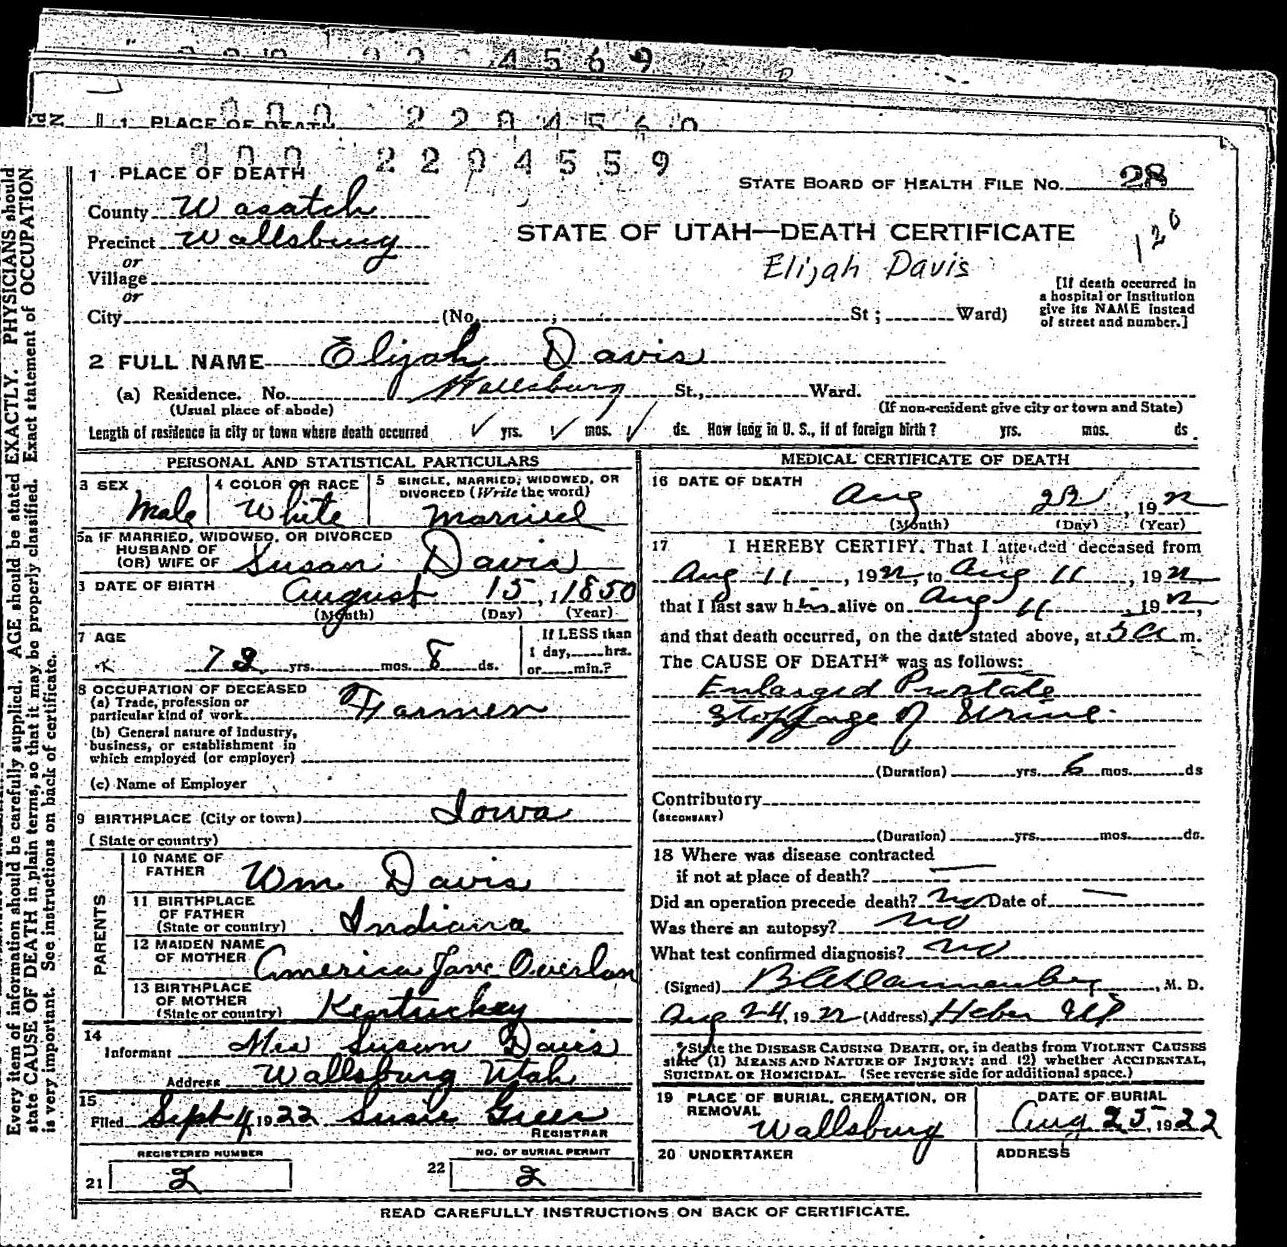 4 5 6 9
1 PLACE OF DEATH
0 0 0 2 2 0 4 5 6 0
0 0 0 2 2 0 4 5 5 9
1 PLACE OF DEATH
STATE BOARD OF HEALTH FILE NO. 28
County Wasatch
120
Precinct Wallsburg
STATE OF UTAH—DEATH CERTIFICATE
or
Elijah Davis
Village
or
[If death occurred in
a hospital or institution
give its NAME instead
of street and number.]
City (No. ; St ; Ward)
2 FULL NAME Elijah Davis
(a) Residence. No. Wallsburg St., Ward.
(Usual place of abode) (If non-resident give city or town and State)
Length of residence in city or town where death occurred ✓ yrs. ✓ mos. ✓ ds. How long in U. S., if of foreign birth? yrs. mos. ds.
PERSONAL AND STATISTICAL PARTICULARS
3 SEX
Male
4 COLOR OR RACE
White
5 SINGLE, MARRIED, WIDOWED, OR
DIVORCED (Write the word)
Married
5a IF MARRIED, WIDOWED, OR DIVORCED
HUSBAND OF
(OR) WIFE OF Susan Davis
3 DATE OF BIRTH August 15, 1850
(Month) (Day) (Year)
7 AGE
72 yrs. mos. 8 ds.
If LESS than
1 day, hrs.
or min.?
8 OCCUPATION OF DECEASED
(a) Trade, profession or
particular kind of work Farmer
(b) General nature of industry,
business, or establishment in
which employed (or employer)
(c) Name of Employer
9 BIRTHPLACE (City or town) Iowa
(State or country)
PARENTS
10 NAME OF
FATHER Wm Davis
11 BIRTHPLACE
OF FATHER
(State or country) Indiana
12 MAIDEN NAME
OF MOTHER America Jane Overlon
13 BIRTHPLACE
OF MOTHER
(State or country) Kentuckey
14
Informant Mrs Susan Davis
Address Wallsburg Utah
15
Filed Sept 4 1922 Susie Greer
REGISTRAR
REGISTERED NUMBER
21 2
NO. OF BURIAL PERMIT
22 2
MEDICAL CERTIFICATE OF DEATH
16 DATE OF DEATH
Aug 22, 1922
(Month) (Day) (Year)
17 I HEREBY CERTIFY. That I attended deceased from
Aug 11, 1922, to Aug 11, 1922
that I last saw him alive on Aug 11, 1922,
and that death occurred, on the date stated above, at 5 a m.
The CAUSE OF DEATH* was as follows:
Enlarged Prostate
Stoppage of Urine.
(Duration) yrs. 6 mos. ds
Contributory
(SECONDARY)
(Duration) yrs. mos. ds.
18 Where was disease contracted
if not at place of death? —
Did an operation precede death? No Date of —
Was there an autopsy? no
What test confirmed diagnosis? no
(Signed) , M. D.
Aug 24, 1922 (Address) Heber Ut
*State the DISEASE CAUSING DEATH, or, in deaths from VIOLENT CAUSES
state (1) MEANS AND NATURE OF INJURY; and (2) whether ACCIDENTAL,
SUICIDAL OR HOMICIDAL. (See reverse side for additional space.)
19 PLACE OF BURIAL, CREMATION, OR
REMOVAL
Wallsburg
DATE OF BURIAL
Aug 25, 1922
20 UNDERTAKER
ADDRESS
READ CAREFULLY INSTRUCTIONS ON BACK OF CERTIFICATE.
Every item of information should be carefully supplied. AGE should be stated EXACTLY. PHYSICIANS should
state CAUSE OF DEATH in plain terms, so that it may be properly classified. Exact statement of OCCUPATION
is very important. See instructions on back of certificate.